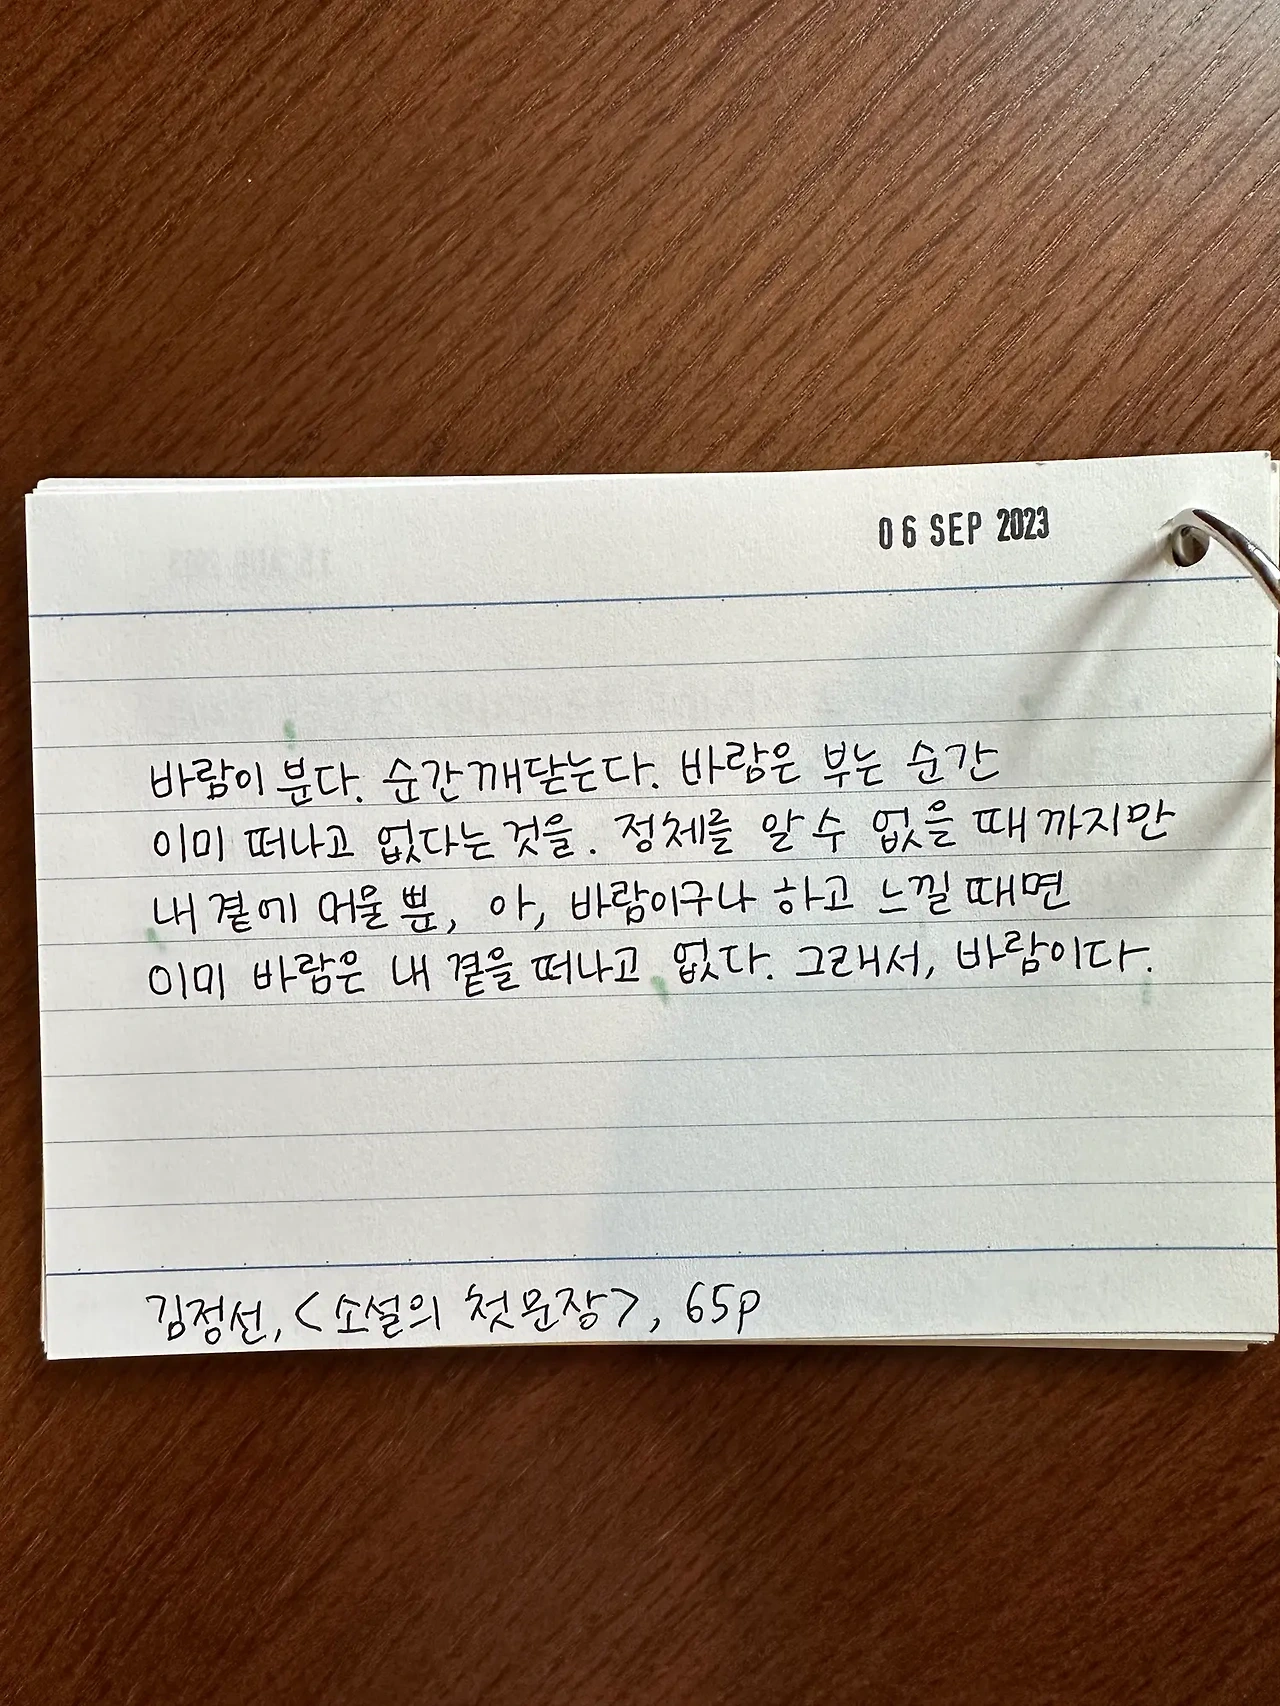 06 SEP 2023
바람이 분다. 순간 깨닫는다. 바람은 부는 순간
이미 떠나고 없다는 것을. 정체를 알 수 없을 때까지만
내 곁에 머물 뿐, 아, 바람이구나 하고 느낄 때면
이미 바람은 내 곁을 떠나고 없다. 그래서, 바람이다.
김정선, <소설의 첫 문장>, 65p